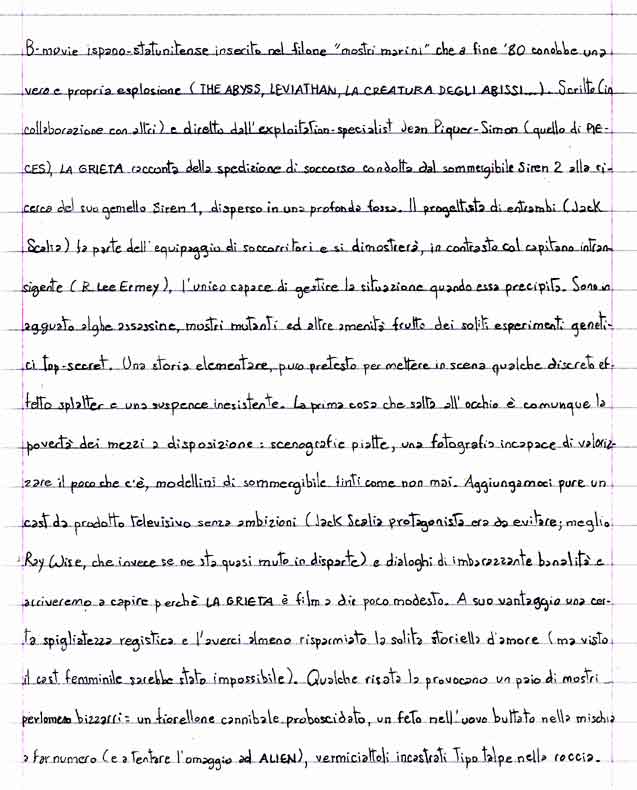 B-movie ispano-statunitense inserito nel filone "mostri marini" che a fine '80 conobbe una
vera e propria esplosione (THE ABYSS, LEVIATHAN, LA CREATURA DEGLI ABISSI...). Scritto (in
collaborazione con altri) e diretto dall'exploitation-specialist Jean Piquer-Simon (quello di PIE-
CES), LA GRIETA racconta della spedizione di soccorso condotta dal sommergibile Siren 2 alla ri-
cerca del suo gemello Siren 1, disperso in una profonda fossa. Il progettista di entrambi (Jack
Scalia) fa parte dell'equipaggio di soccorritori e si dimostrerà, in contrasto col capitano intran
sigente (R. Lee Ermey), l'unico capace di gestire la situazione quando essa precipita. Sono in
agguato alghe assassine, mostri mutanti ed altre amenità frutto dei soliti esperimenti geneti-
ci top-secret. Una storia elementare, puro pretesto per mettere in scena qualche discreto ef-
fetto splatter e una suspence inesistente. La prima cosa che salta all'occhio è comunque la
povertà dei mezzi a disposizione: scenografie piatte, una fotografia incapace di valoriz-
zare il poco che c'è, modellini di sommergibile finti come non mai. Aggiungiamoci pure un
cast da prodotto televisivo senza ambizioni (Jack Scalia protagonista era da evitare; meglio
Ray Wise, che invece se ne sta quasi muto in disparte) e dialoghi di imbarazzante banalità e
arriveremo a capire perchè LA GRIETA è film a dir poco modesto. A suo vantaggio una cer-
ta spigliatezza registica e l'averci almeno risparmiato la solita storiella d'amore (ma visto
il cast femminile sarebbe stato impossibile). Qualche risata la provocano un paio di mostri
perlomeno bizzarri: un fiorellone cannibale proboscidato, un feto nell'uovo buttato nella mischia
a far numero (e a tentare l'omaggio ad ALIEN), vermiciattoli incastrati tipo talpe nella roccia.